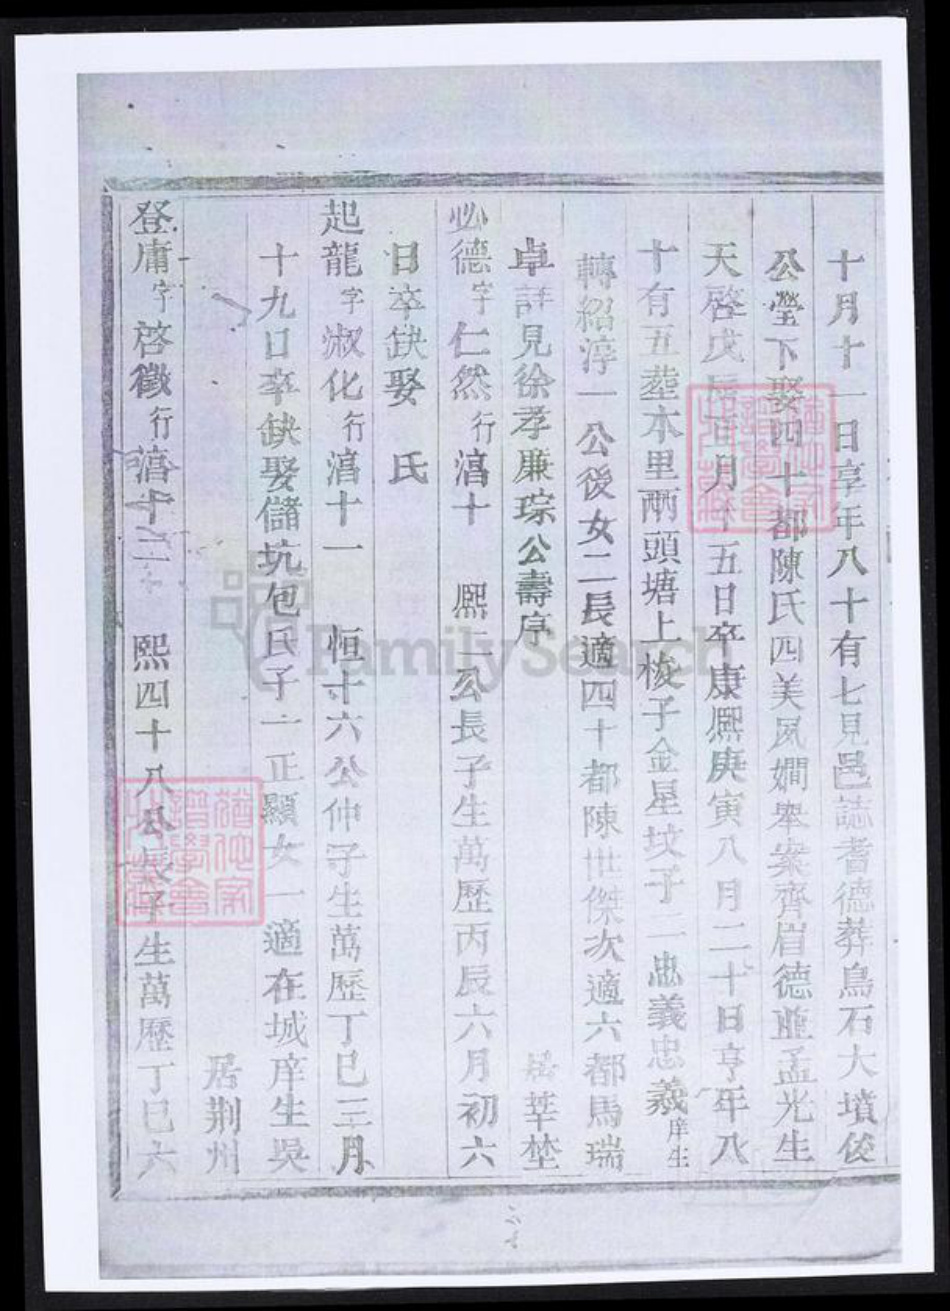 十月十一日享年八十有七見邑誌耆德葬鳥石大墳後
公塋下娶四十都陳氏四美夙嫻舉案齊眉德匪孟光生
天啓戊辰 月十五日卒康熙庚寅八月二十日亨年八
十有五塟本里兩頭塘上梭子金星坟子二忠義忠羲庠生
轉紹淳一公後女二長適四十都陳世傑次適六都馬瑞
卓詳見徐孝廉琮公壽序 居莘埜
必德字仁然行湻十 熙二公長子生萬歷丙辰六月初六
日卒缺娶 氏
起龍字淑化行湻十一 恒十六公仲子生萬歷丁巳三月
十九日卒缺娶儲坑包氏子一正顯女一適在城庠生吳
居荆州
登庸字啓徵行湻十二 熙四十八公長子生萬歷丁巳六
FamilySearch